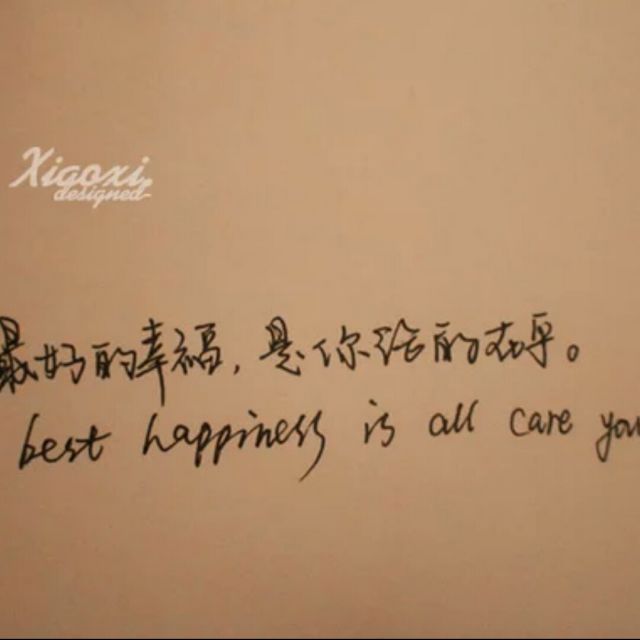 Xiaoxi
designed
最好的幸福，是你给的在乎。
best happiness is all care you